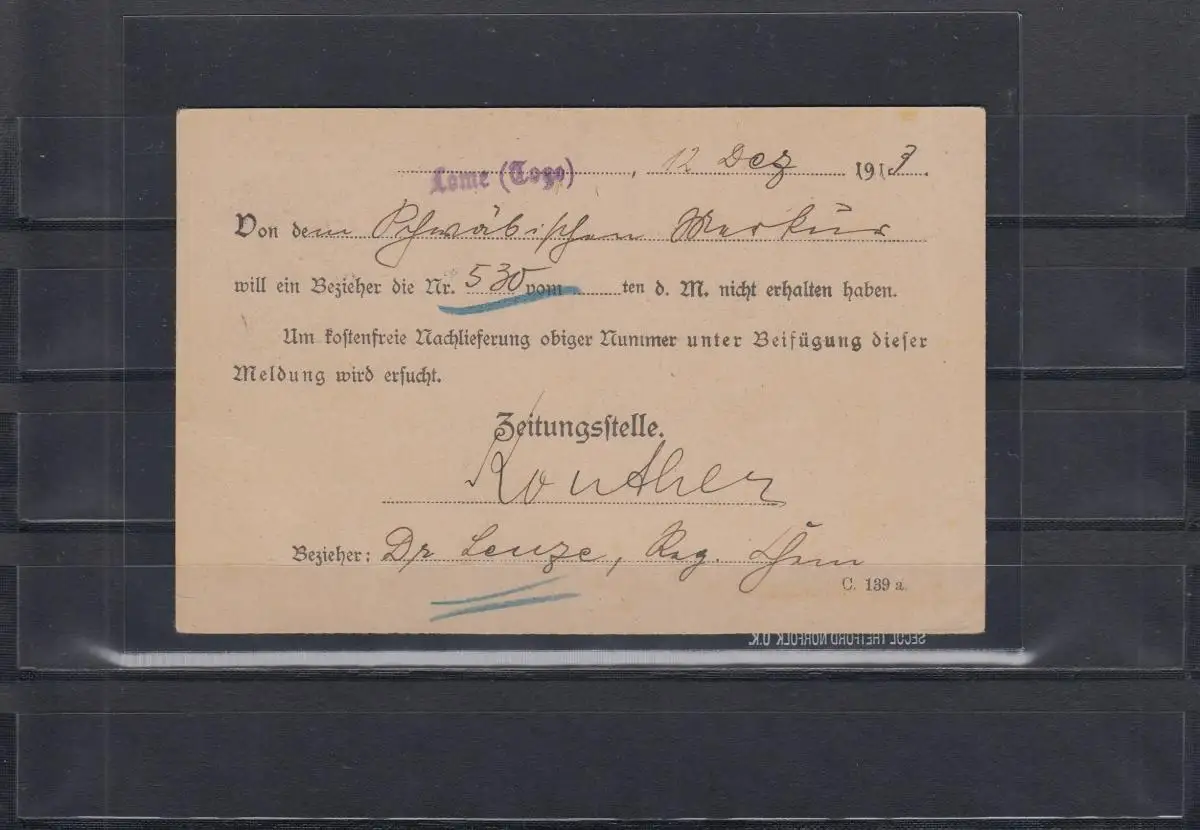 Lome (Togo), 12 Dez 1913.
Von dem Schwäbischen Merkur
will ein Bezieher die Nr. 530 vom ten d. M. nicht erhalten haben.
Um kostenfreie Nachlieferung obiger Nummer unter Beifügung dieser
Meldung wird ersucht.
Zeitungsstelle.
Bezieher: Dr Lenze, Reg.
C. 139 a.
SECOL THETFORD NORFOLK U.K.